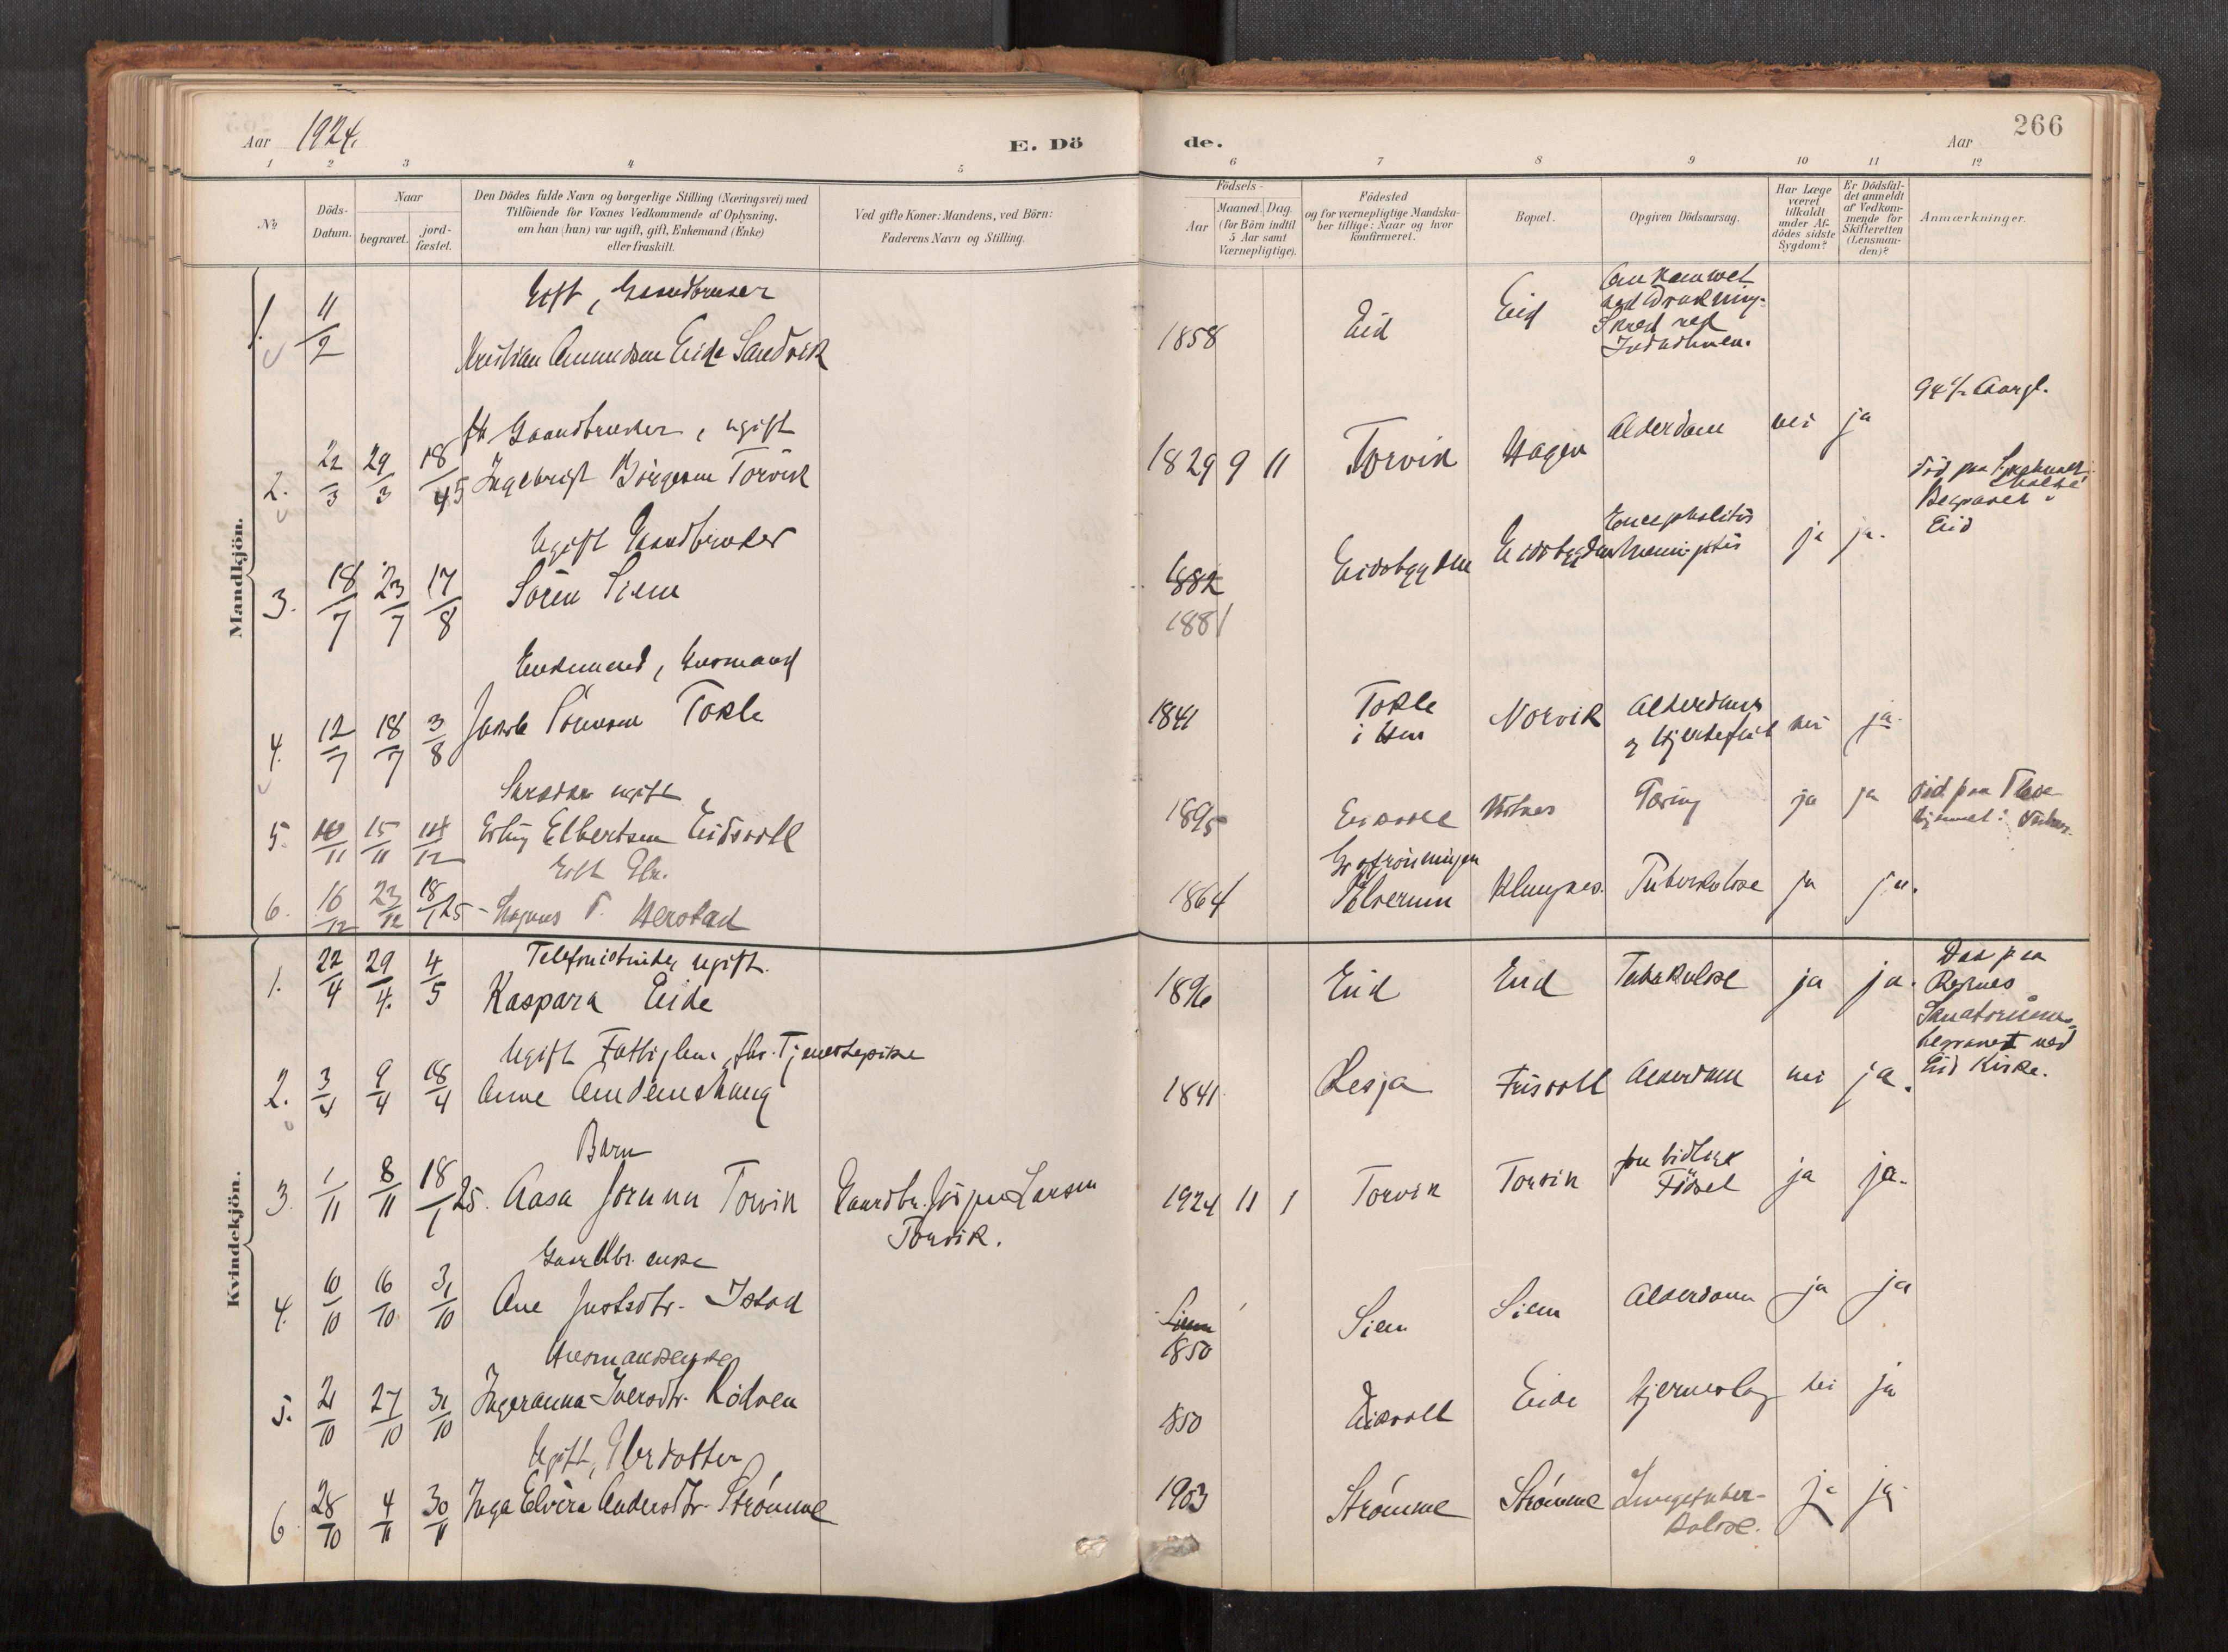 Aar 1924.
E. Dö
de.
Aar
266
1 2 3 4 5 6 7 8 9 10 11 12
No
Döds-
Datum.
Naar
begravet.
jord-
fæstet.
Den Dödes fulde Navn og borgerlige Stilling (Næringsvei) med
Tilföiende for Voxnes Vedkommende af Oplysning,
om han (hun) var ugift, gift, Enkemand (Enke)
eller fraskilt.
Ved gifte Koner: Mandens, ved Börn:
Faderens Navn og Stilling.
Födsels-
Aar
Maaned. Dag.
(for Börn indtil
5 Aar samt
Værnepligtige).
Födested
og for værnepligtige Mandska-
ber tillige: Naar og hvor
konfirmeret.
Bopæl.
Opgiven Dödsaarsag.
Har Læge
været
tilkaldt
under Af-
dödes sidste
Sygdom?
Er Dödsfal-
det anmeldt
af Vedkom-
mende for
Skifteretten
(Lensman-
den)?
Anmærkninger.
Mandkjön.
Gift, Gaardbruker
1. 11/2 Kristian Amundsen Eide Sandvik 1858 Eid Eid
Omkommet
ved Drukning.
Skred ved
fh Gaardbruker, ugift
2. 22/3 29/3 18/4 Ingebrigt Börgesen Torvik 1829 9 11 Torvik Hagen Alderdom nei ja
94 1/2 Aargl.
Ugift Gaardbruker
3. 18/7 23/7 17/8 Sören Siem 1882 Eidsbygden Eidsbygden
1881
Encephalitis
Meningitis
ja ja.
död paa
Begravet
Eid
Enkemand, Husmand
4. 12/7 18/7 3/8 Jakob Sörensen Tokle 1841
Tokle
i Hen
Norvik
Alderdoms
og Hjertefeil
nei ja.
Skrædder ugift
5. 10/11 15/11 14/12 Erling Elbertsen Eidsvoll 1895 Eidsvoll Vestnes Tæring ja ja
död paa
Gift Gbr.
6. 16/12 23/12 18/1 25 Magnus T. Herstad 1864
Elverum
Klungnes. Tuberkulose ja ja.
Kvindekjön.
Telefonistinde, ugift.
1. 22/4 29/4. 4/5 Kaspara Eide 1896 Eid Eid Tuberkulose ja ja.
Död paa
Reknes
Sanatorium.
begravet ved
Eid Kirke.
Ugift Fattiglem, fhv. Tjenestepike
2. 3/4 9/4 18/4 Anne 1841 Lesja Frisvoll Alderdom nei ja.
Barn
3. 1/11 8/11 18/1 25. Aasa Jorunn Torvik Gaardbr. Jörgen Larsen
Torvik.
1924 11 1 Torvik Torvik
for tidlig
Födsel
ja ja.
Gaardbr. enke
4. 10/10 16/10 31/10 Ane Justsdtr. Istad
Siem
1850
Siem Siem Alderdom ja ja
Husmandsenke
5. 21/10 27/10 31/10 Ingeranna Iversdtr. Rödven 1850 Eidsvoll Eide Hjerneslag nei ja
Ugift, Gbrdatter
6. 28/10 4/11 30/11 Inga Elvira Andersdtr. Strömme 1903 Strömme Strömme
Lungetuber-
kulose.
ja ja